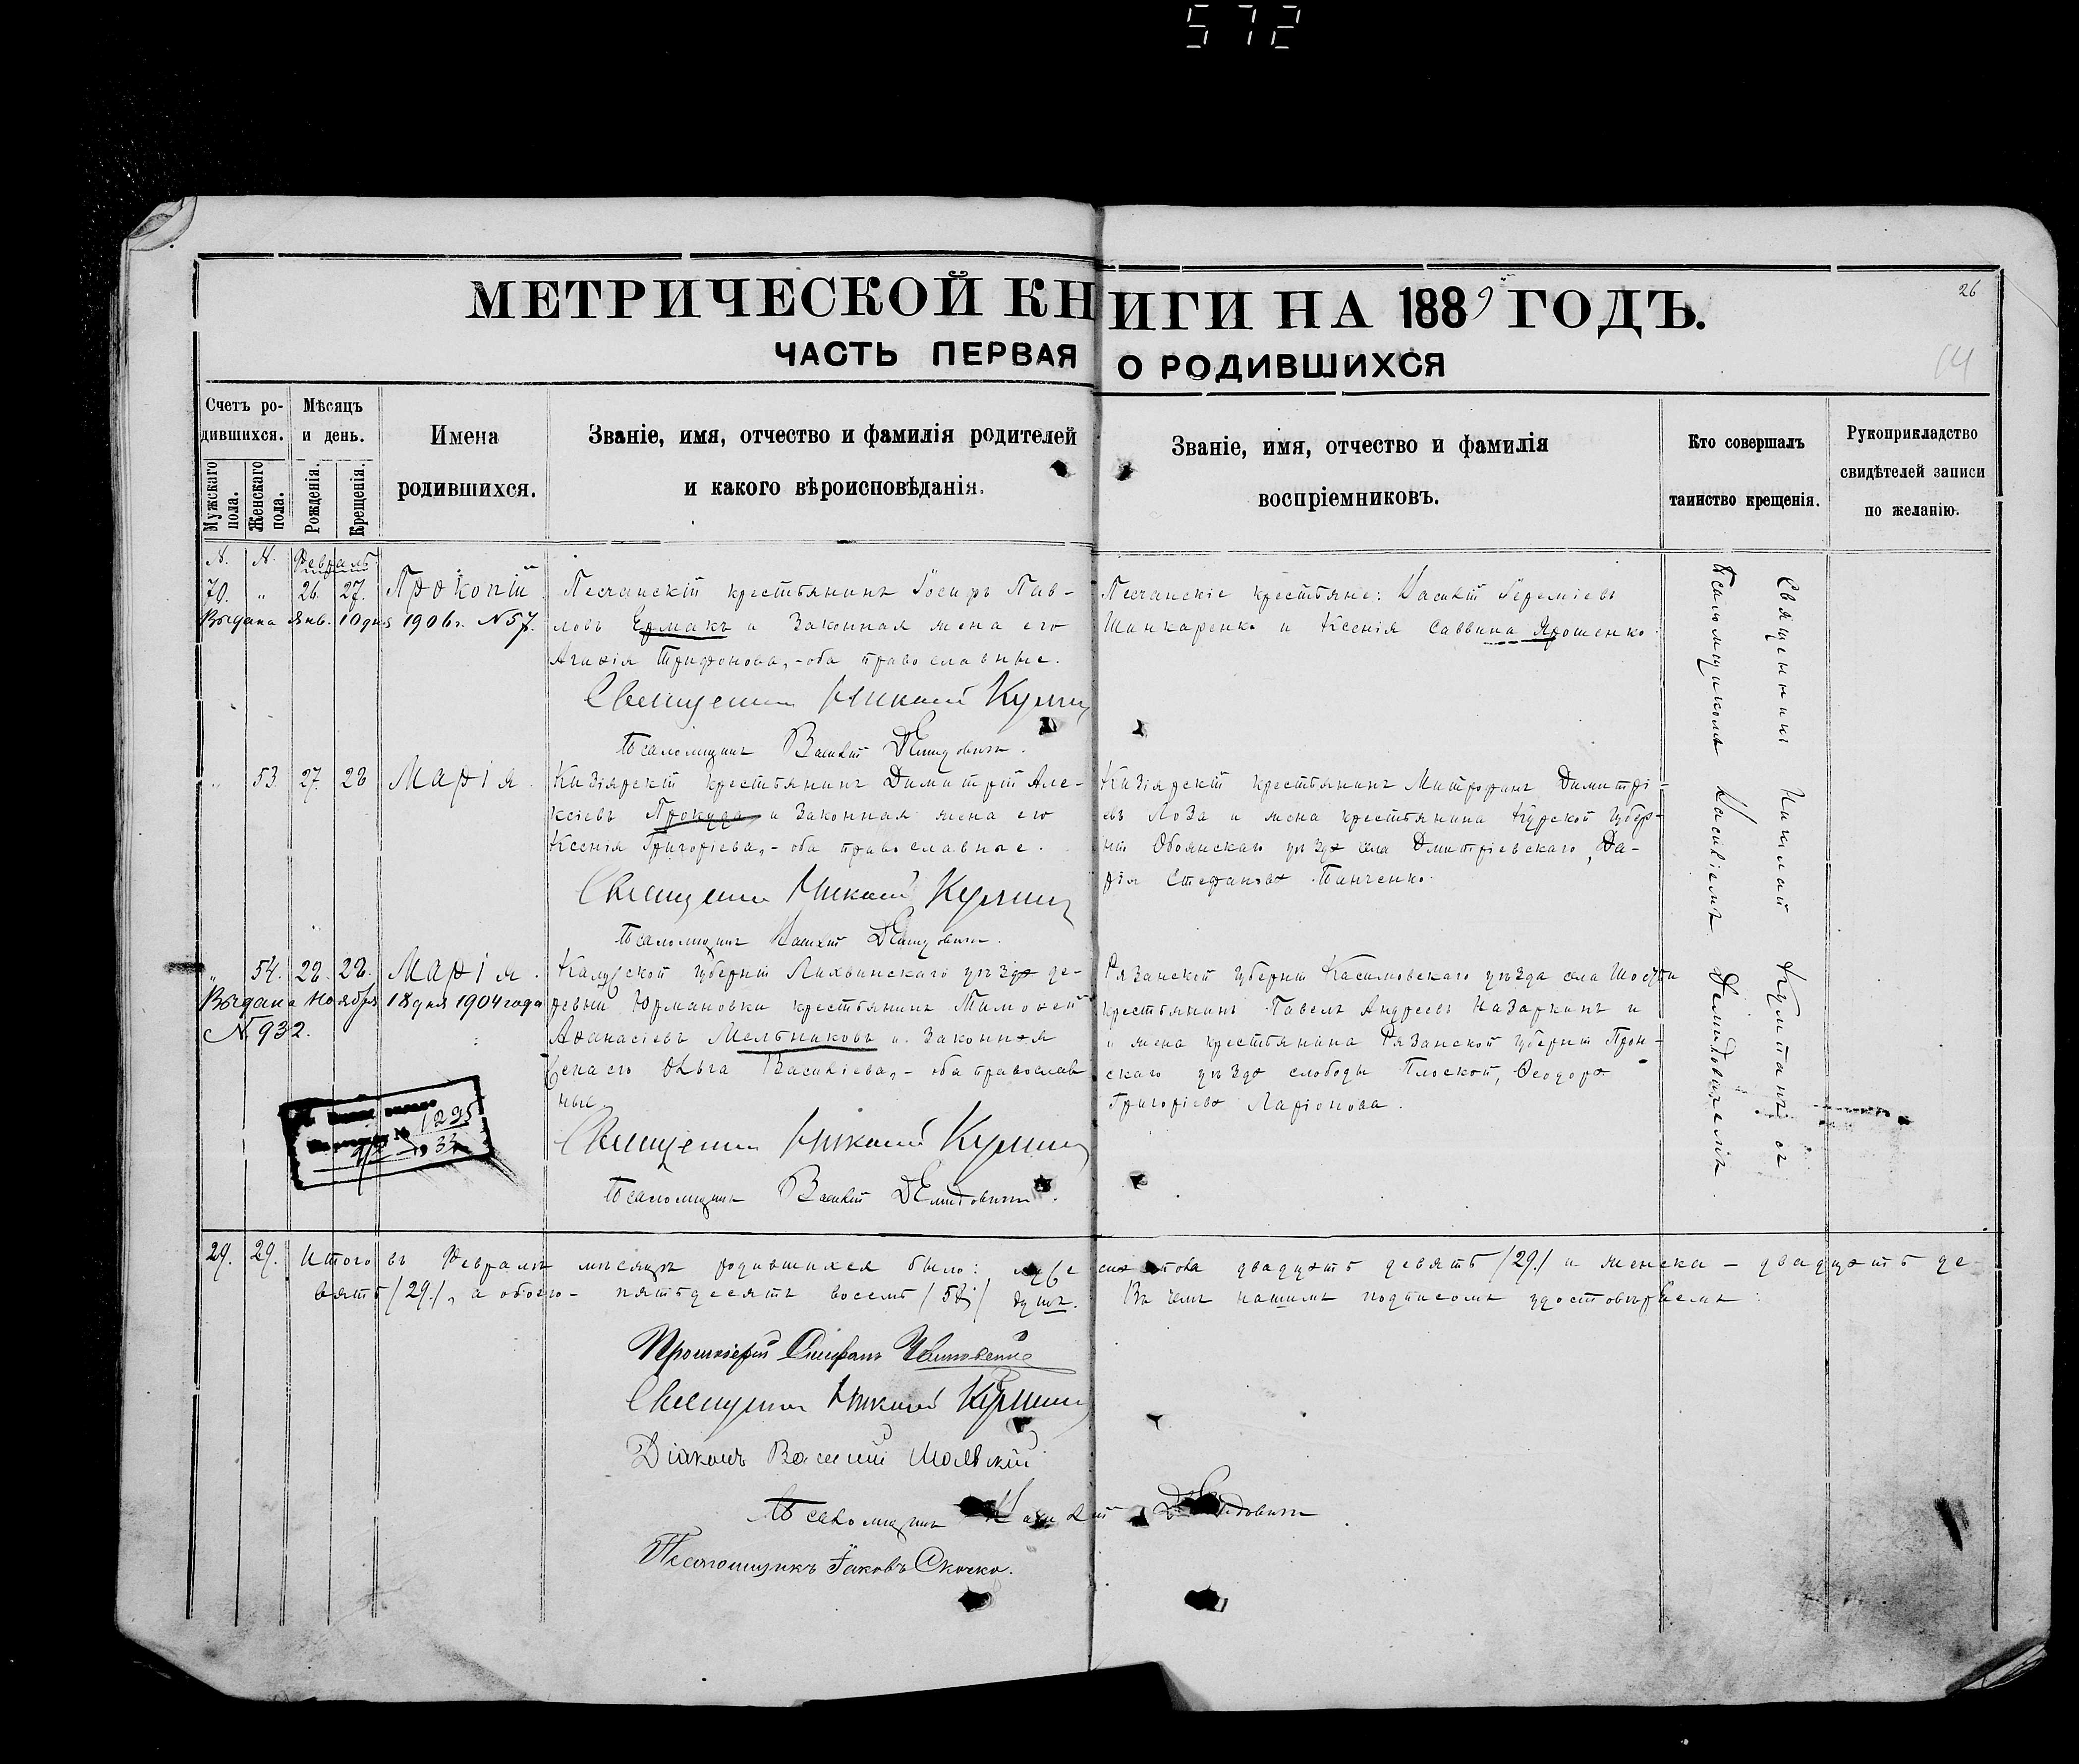 572
26
МЕТРИЧЕСКОЙ КНИГИ НА 1889 ГОДЪ.
ЧАСТЬ ПЕРВАЯ О РОДИВШИХСЯ
Счетъ ро-
дившихся.
Мужскаго пола.
Женскаго пола.
Мѣсяцъ
и день.
Рожденія.
Крещенія.
Имена
родившихся.
Званіе, имя, отчество и фамилія родителей
и какого вѣроисповѣданія.
Званіе, имя, отчество и фамилія
воспріемниковъ.
Кто совершалъ
таинство крещенія.
Рукоприкладство
свидѣтелей записи
по желанію.
N. N. Февраль
70. " 26. 27. Прокопій
Выдана Янв. 10 дня 1906 г. N 57.
Песчанскій крестьянинъ Іосифъ Пав-
ловъ Ермакъ и законная жена его
Агафія Трифонова, - оба православные.
Священникъ Николай
Псаломщикъ Василій Демидовичъ.
Песчанскіе крестьяне: Василій Іереміевъ
Шинкаренко и Ксенія Саввина Ярошенко.
" 53. 27. 28 Марія.
Кизіярскій крестьянинъ Димитрій Але-
ксіевъ Прокуда и законная жена его
Ксенія Григоріева, - оба православные.
Священникъ Николай
Псаломщикъ Василій Демидовичъ.
Кизіярскій крестьянинъ Митрофанъ Димитрі-
евъ Лоза и жена крестьянина Курской губер-
ніи Обоянскаго уѣзда села Дмитріевскаго, Да-
рія Стефанова Панченко.
" 54. 28. 28. Марія.
Выдана Ноября 18 дня 1904 года
N. 932.
Калужской губерніи Лихвинскаго уѣзда де-
ревни Юрмановки крестьянинъ Тимоѳей
Аѳанасіевъ Мельниковъ и законная
жена его Ольга Василіева, - оба православ
ные.
Священникъ Николай
Псаломщикъ Василій Демидовичъ.
Рязанской губерніи Касимовскаго уѣзда села
крестьянинъ Павелъ Андреевъ Назаркинъ и
и жена крестьянина Рязанской губерніи Прон-
скаго уѣзда слободы Плоской, Ѳеодора
Григоріева Ларіонова.
1295
33
Священникъ Николай съ
Псаломщикомъ Василіемъ Демидовичемъ.
29. 29. Итого въ Февралѣ мѣсяцѣ родившихся было: мужескаго пола двадцать девять /29./ и женска - двадцать де-
вять /29./, а обоего - пятьдесятъ восемь /58/ душъ. Въ чемъ нашимъ подписомъ удостовѣряемъ:
Протоіерей Стефанъ
Священникъ Николай
Діаконъ Василій
Псаломщикъ Василій Демидовичъ
Псаломщикъ Іаковъ Скочко.